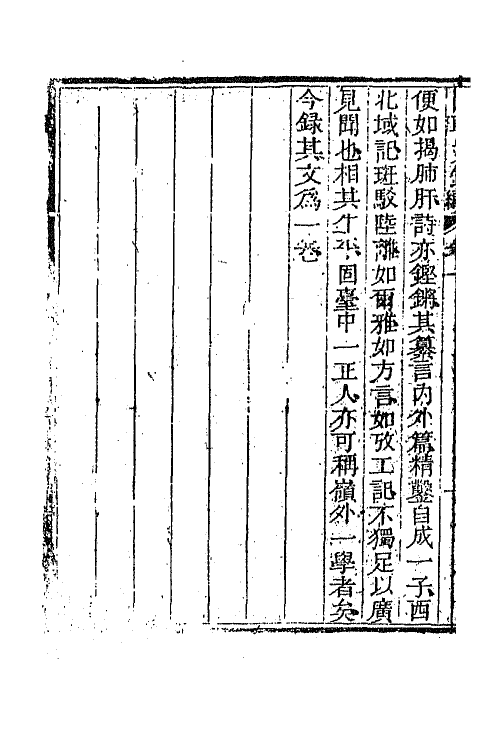 便如揭肺肝詩亦鏗鏘其纂言內外篇精鑿自成一子西
北域記斑駁陸離如爾雅如方言如攷工記不獨足以廣
見聞也相其生平固臺中一正人亦可稱嶺外一學者矣
今録其文爲一卷